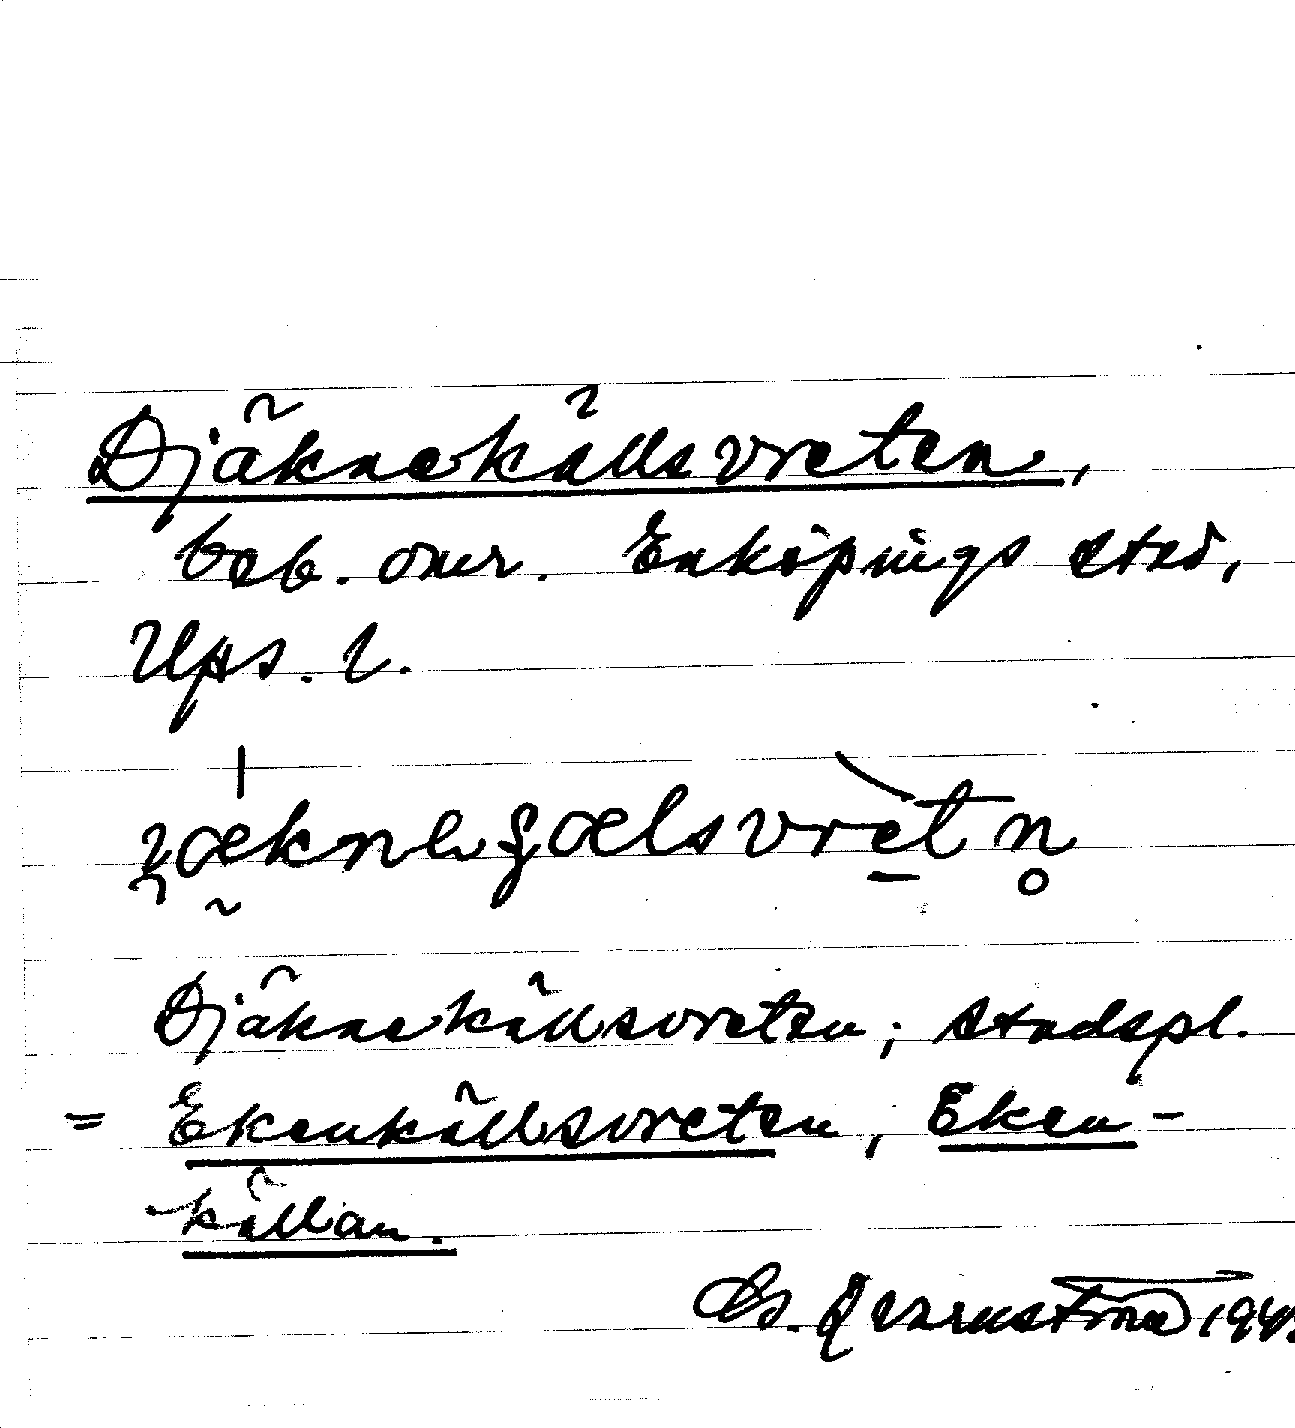 Djäknekällsvreten,
beb. omr. Enköpings stad,
Ups. l.
Djäknekällsvreten; stadspl.
= Ekenkällsvreten, Eken-
källan.